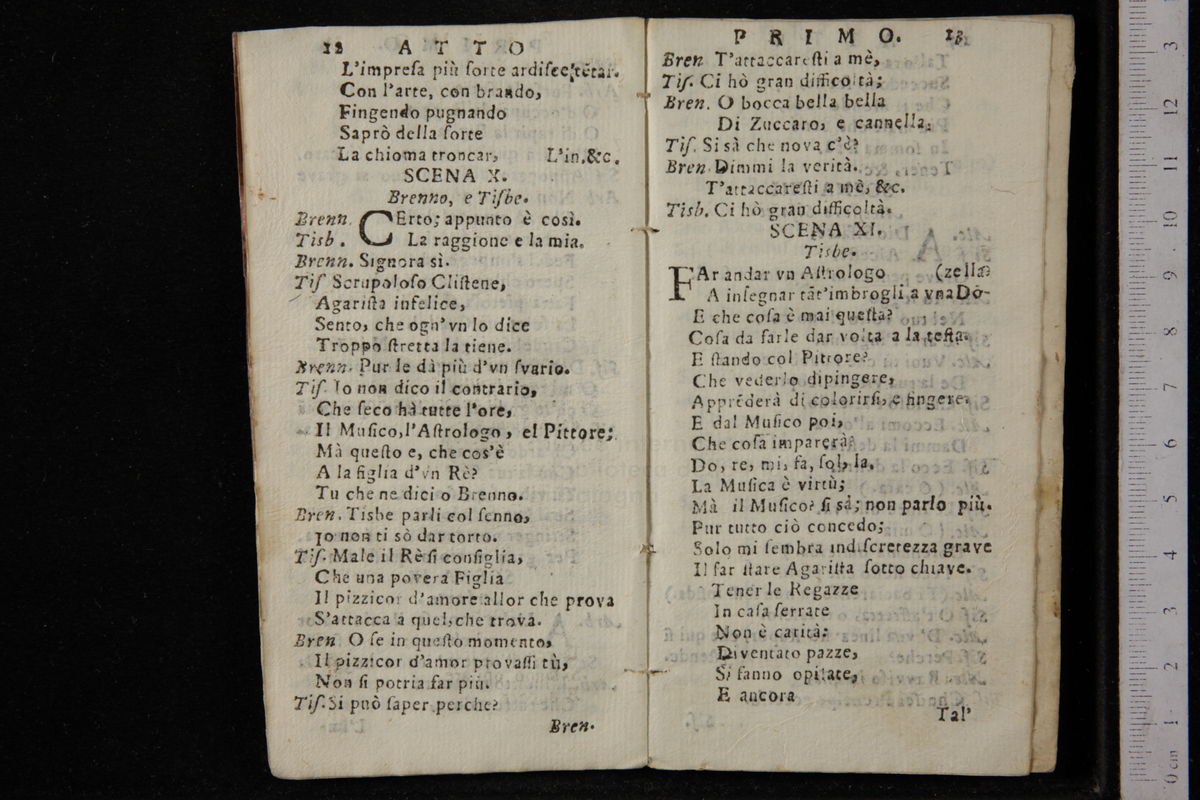 12 ATTO
L'impresa più forte ardisce,tẽtar.
Con l'arte, con brando,
Fingendo pugnando
Saprò della sorte
La chioma troncar, L'in.&c.
SCENA X.
Brenno, e Tisbe.
Brenn. CErto; appunto è così.
Tisb. La raggione e la mia.
Brenn. Signora sì.
Tis Scrupoloso Clistene,
Agarista infelice,
Sento, che ogn'vn lo dice
Troppo stretta la tiene.
Brenn. Pur le dà più d'vn svario.
Tis. Io non dico il contrario,
Che seco hà tutte l'ore,
Il Musico, l'Astrologo, el Pittore;
Mà questo e, che cos'è
A la figlia d'vn Rè?
Tu che ne dici o Brenno.
Bren. Tisbe parli col senno,
Io non ti sò dar torto.
Tis. Male il Rè si consiglia,
Che una povera Figlia
Il pizzicor d'amore allor che prova
S'attacca a quel, che trova.
Bren. O se in questo momento,
Il pizzicor d'amor provassi tù,
Non si potria far più.
Tis. Si può saper perche?
Bren.
PRIMO. 13
Bren T'attaccaresti a mè,
Tis. Ci hò gran difficoltà;
Bren. O bocca bella bella
Di Zuccaro, e cannella;
Tis. Si sà che nova c'è?
Bren. Dimmi la verità.
T'attaccaresti a mè, &c.
Tisb. Ci hò gran difficoltà.
SCENA XI.
Tisbe.
FAr andar vn Astrologo (zella?
A insegnar tãt'imbrogli a vna Dõ-
E che cosa è mai questa?
Cosa da farle dar volta a la testa.
E stando col Pittore?
Che vederlo dipingere,
Apprẽderà di colorirsi, e fingere.
E dal Musico poi,
Che cosa imparerà?
Do, re, mi, fa, sol, la.
La Musica è virtù;
Mà il Musico? si sà; non parlo più.
Pur tutto ciò concedo;
Solo mi sembra indiscretezza grave
Il far stare Agarista sotto chiave.
Tener le Regazze
In casa serrate
Non è carità:
Diventato pazze,
Si fanno opilate,
E ancora
Tal'